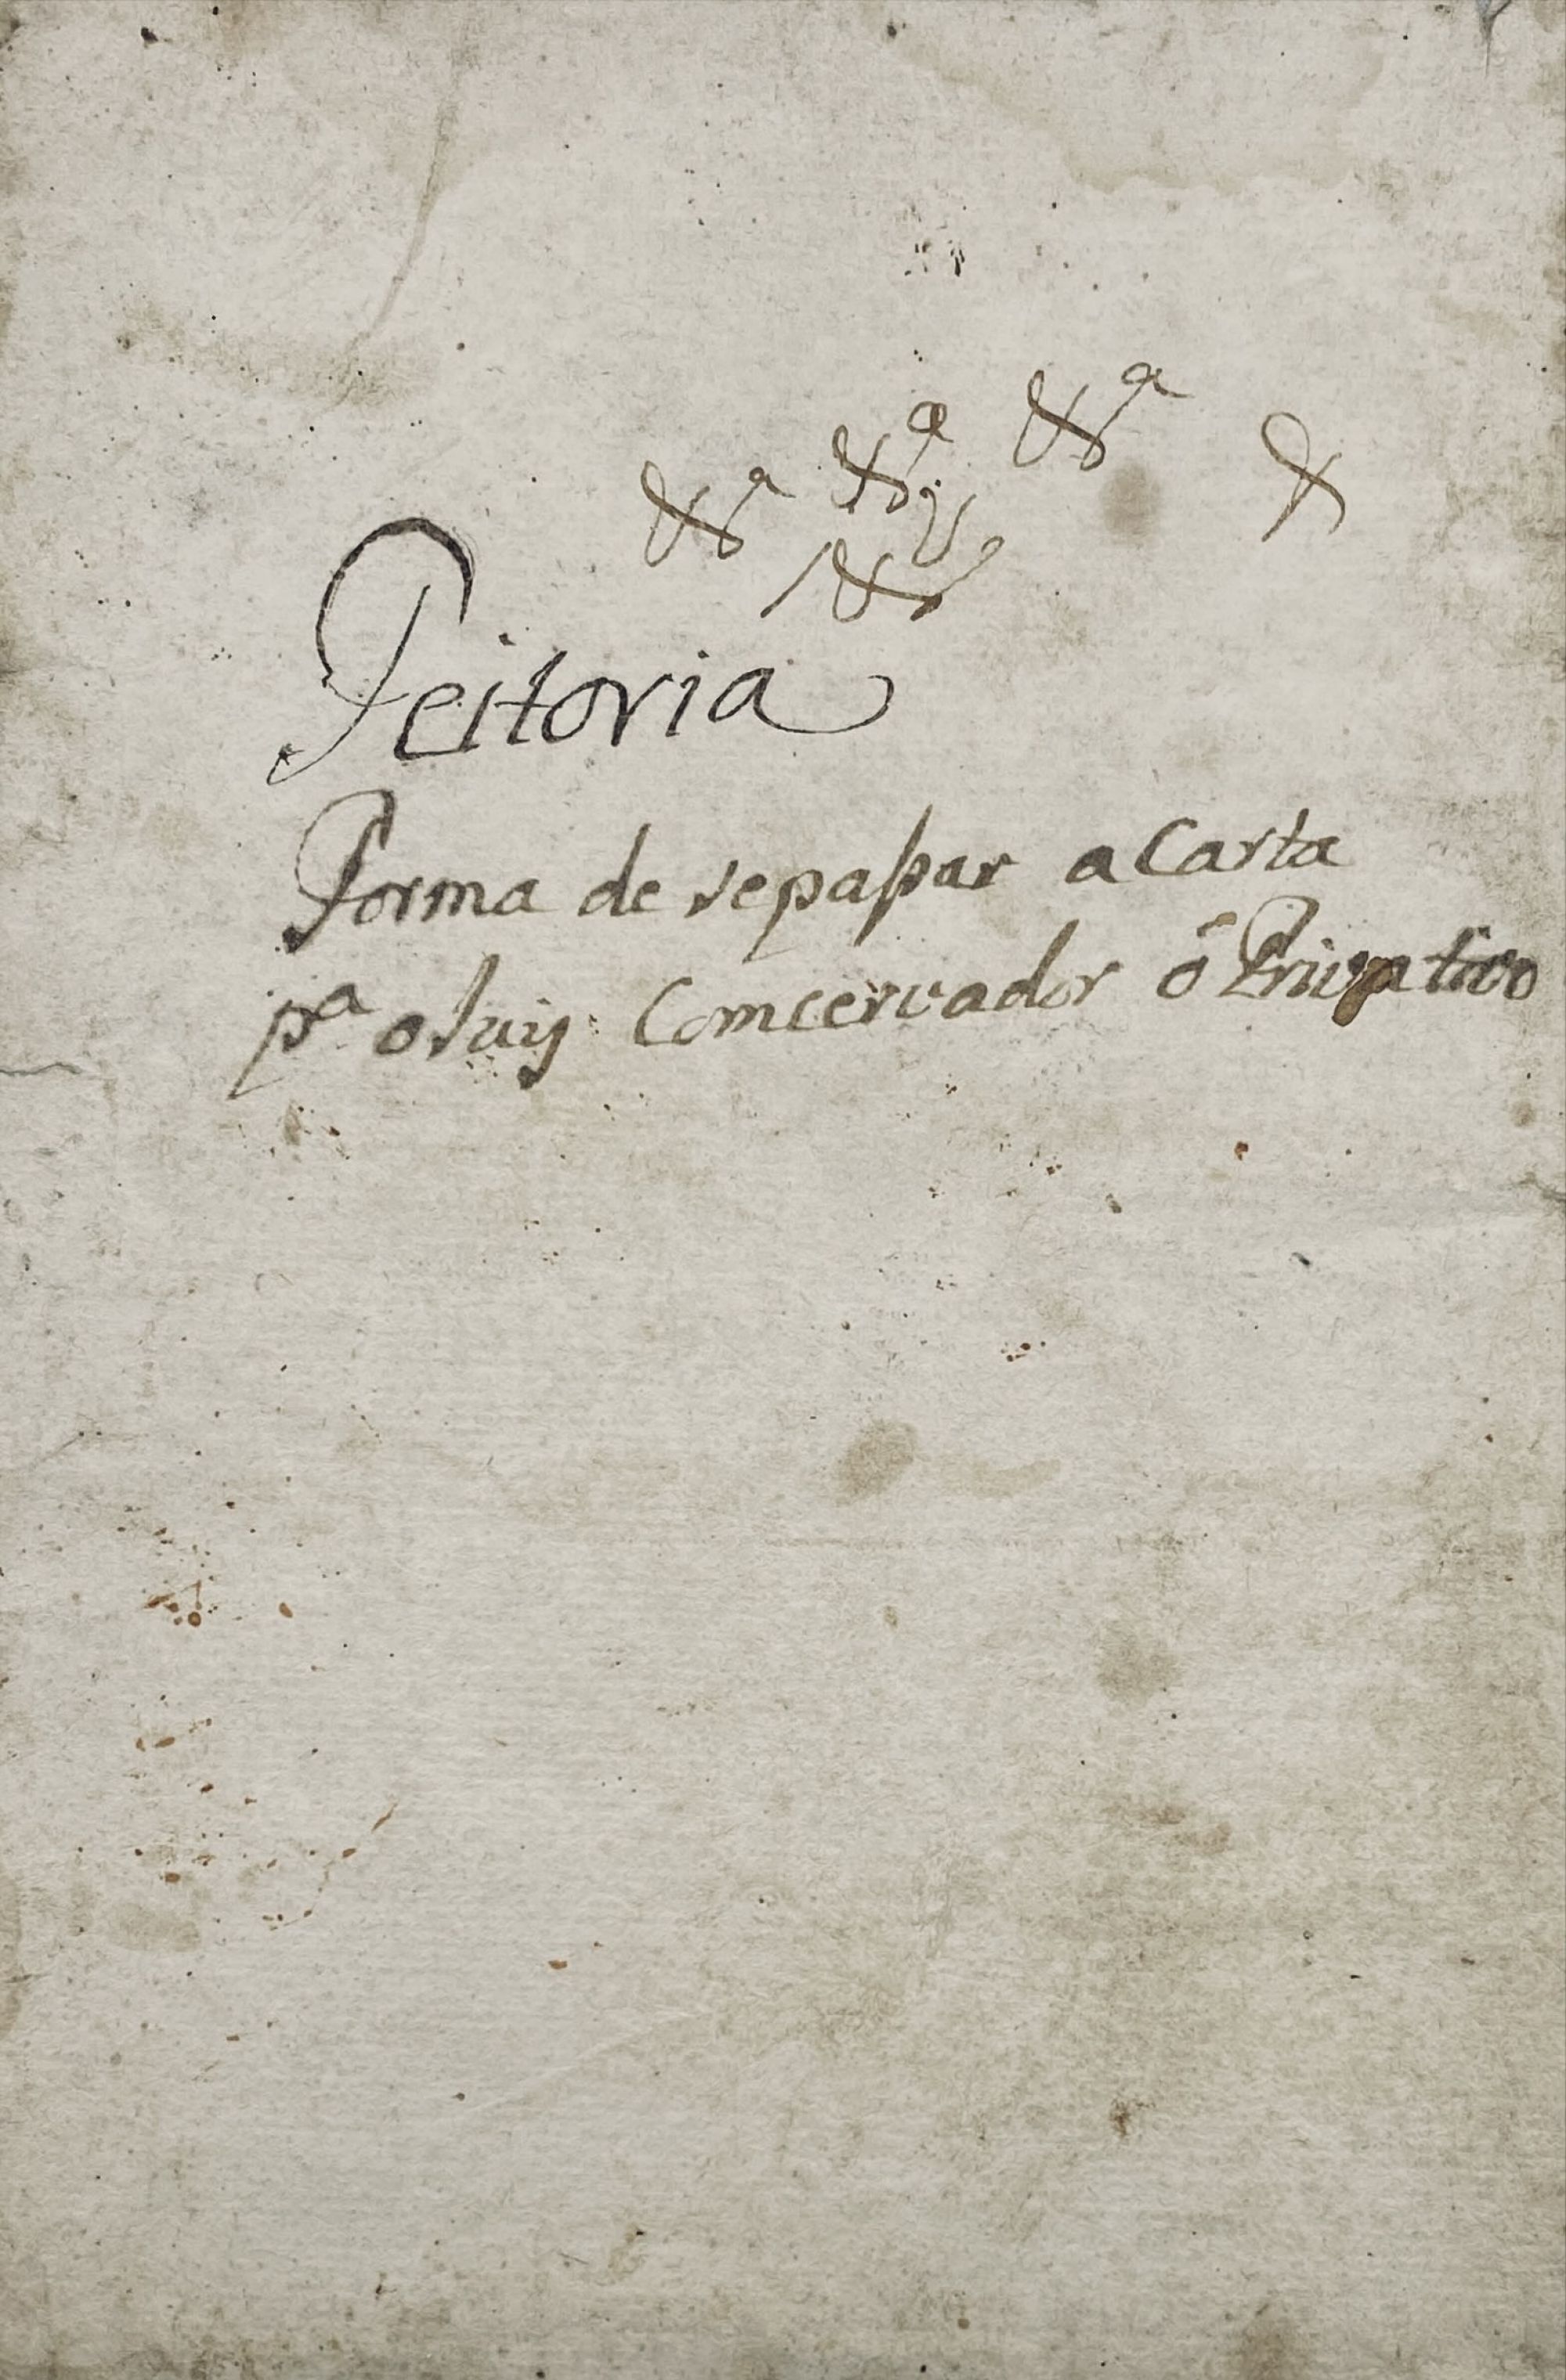 &ª &ª &ª &
&
Feitoria
Forma de sepaßar a Carta
pª o Juiz Comcervador ó Privativo